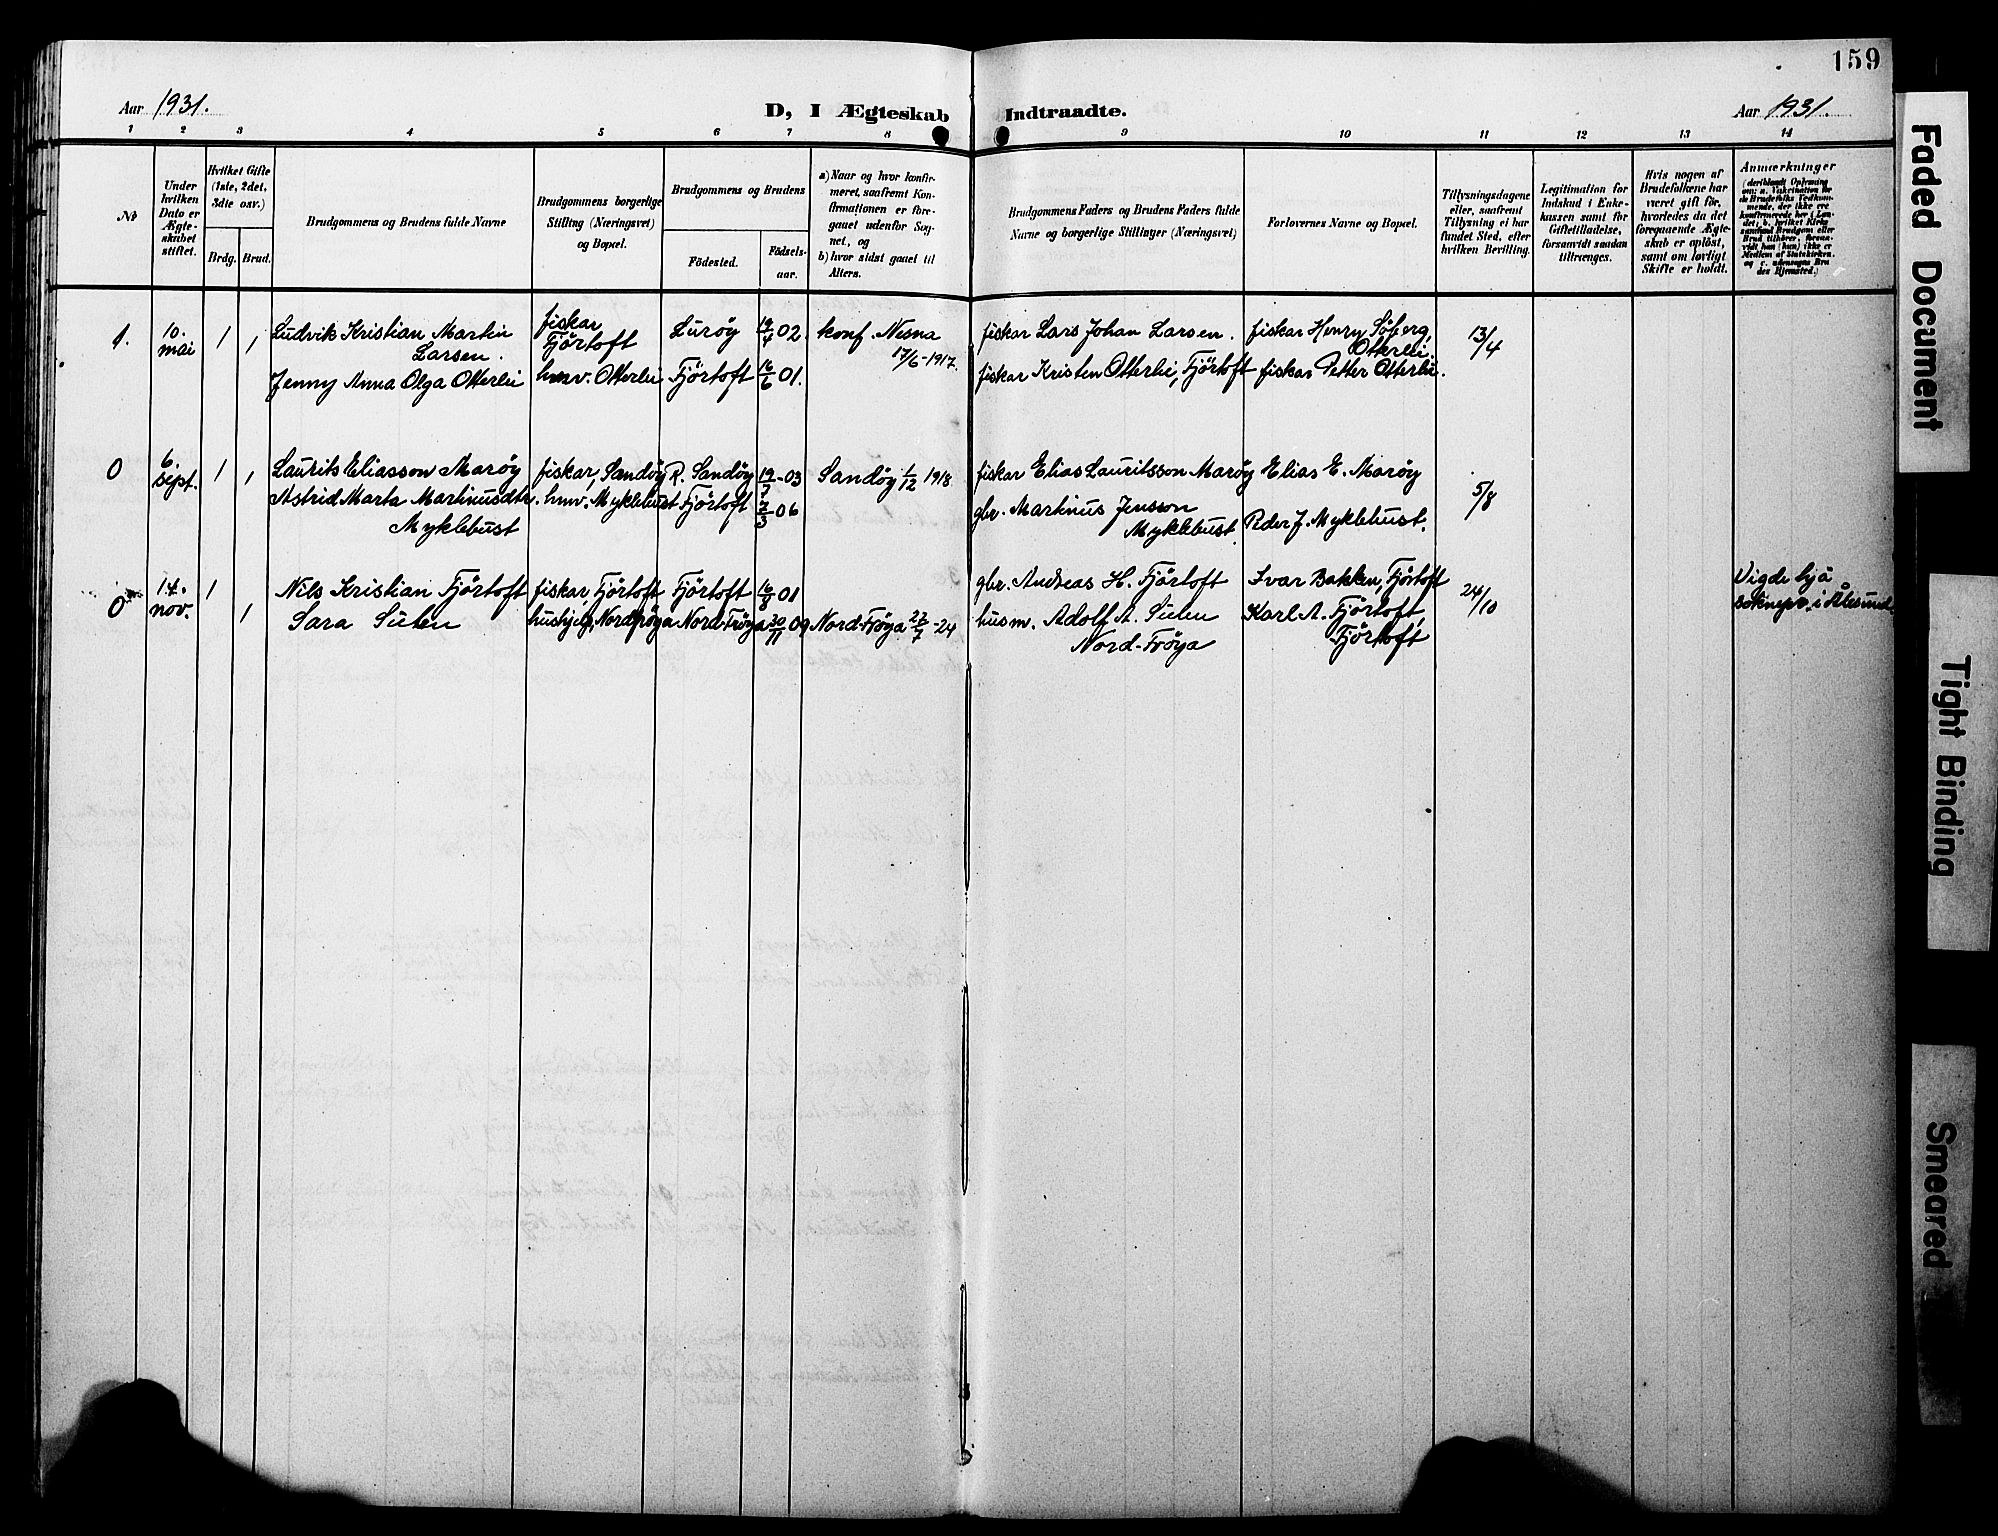 159
Aar 1931.
D, I Ægteskab Indtraadte.
Aar 1931.
1 2 3 4 5 6 7 8 9 10 11 12 13 14
No
Under hvilken Dato er Ægteskabet stiftet.
Hvilket Gifte (1ste, 2det, 3die osv.)
Brdg. Brud.
Brudgommens og Brudens fulde Navne
Brudgommens borgerlige Stilling (Næringsvei) og Bopæl.
Brudgommens og Brudens
Födested.
Födselsaar.
a) Naar og hvor konfirmeret, saafremt Konfirmationen er foregaaet udenfor Sognet, og
b) hvor sidst gaaet til Alters.
Brudgommens Faders og Brudens Faders fulde Navne og borgerlige Stillinger (Næringsvei)
Forlovernes Navne og Bopæl.
Tillysningsdagene eller, saafremt Tillysning ei har fundet Sted, efter hvilken Bevilling.
Legitimation for Indskud i Enkekassen samt for Giftetilladelse, forsaavidt saadan tiltrænges.
Hvis nogen af Brudefolkene har været gift før, hvorledes da det foregaaende Ægteskab er opløst, samt om lovligt Skifte er holdt.
Anmærkninger
1. 10. mai 1 1 Ludvik Kristian Martin Larsen. fiskar Fjörtoft Luröy 19/4 02. konf. Nesna 17/6-1917. fiskar Lars Johan Larsen. fiskar Henry Söberg, Otterlei. 13/4
Jenny Anna Olga Otterlei hmv. Otterlei Fjörtoft 16/6 01. fiskar Kristen Otterlei, Fjörtoft fiskar Petter Otterlei.
0 6. sept. 1 1 Laurits Eliasson Maröy fiskar, Sandöy R. Sandöy 19/7-03 Sandöy 1/12 1918 fiskar Elias Lauritsson Maröy Elias E. Maröy 5/8
Astrid Marta Martinusdtr. Myklebust hmv. Myklebust Fjörtoft 7/3 06 gbr. Martinus Jensson Myklebust. Peder J. Myklebust.
0 14. nov. 1 Nils Kristian Fjörtoft fiskar, Fjörtoft Fjörtoft 16/8 01 gbr. Andreas H. Fjörtoft Ivar Bakken, Fjörtoft 24/10 Vigde hjå sokneprs. i Ålesund
1 Sara Sulen hushjelp, Nordfröya Nord-Fröya 30/11 09 Nord-Fröya 27/7-24 husm. Adolf A. Sulen Nord-Fröya Karl A. Fjörtoft, Fjörtoft
Faded Document
Tight Binding
Smeared